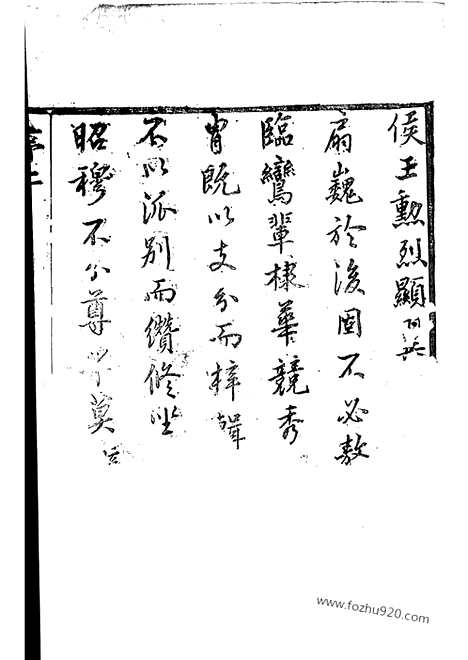 侯王勳烈顯
扇巍於後固不必敖
臨鸞輩棣萼競秀
胄既以支分而梓輯
不以派別而纘修
昭穆不分尊卑莫
www.fozhu920.com